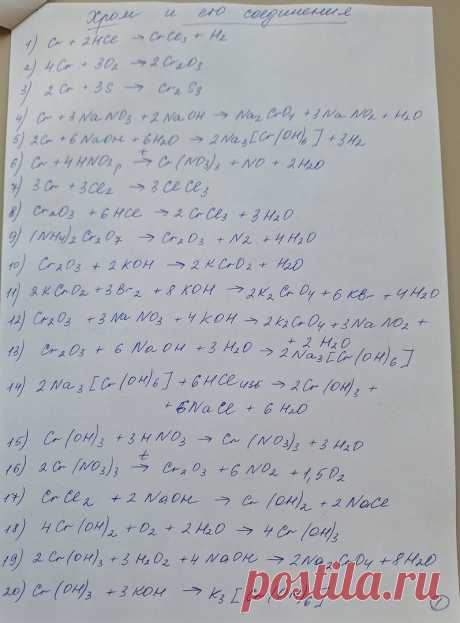 Хром и его соединения
1) Cr + 2HCl → CrCl₃ + H₂
2) 4Cr + 3O₂ → 2Cr₂O₃
3) 2Cr + 3S → Cr₂S₃
4) Cr + 3NaNO₃ + 2NaOH → Na₂CrO₄ + 3NaNO₂ + H₂O
5) 2Cr + 6NaOH + 6H₂O → 2Na₃[Cr(OH)₆] + 3H₂
6) Cr + 4HNO₃р →ᵗ Cr(NO₃)₃ + NO + 2H₂O
7) 3Cr + 3Cl₂ → 3ClCl₃
8) Cr₂O₃ + 6HCl → 2CrCl₃ + 3H₂O
9) (NH₄)₂Cr₂O₇ → Cr₂O₃ + N₂ + 4H₂O
10) Cr₂O₃ + 2KOH → 2KCrO₂ + H₂O
11) 2KCrO₂ + 3Br₂ + 8KOH → 2K₂CrO₄ + 6KBr + 4H₂O
12) Cr₂O₃ + 3NaNO₃ + 4KOH → 2K₂CrO₄ + 3NaNO₂ +
+ 2H₂O
13) Cr₂O₃ + 6NaOH + 3H₂O → 2Na₃[Cr(OH)₆]
14) 2Na₃[Cr(OH)₆] + 6HCl изб → 2Cr(OH)₃ +
+ 6NaCl + 6H₂O
15) Cr(OH)₃ + 3HNO₃ → Cr(NO₃)₃ + 3H₂O
16) 2Cr(NO₃)₃ →ᵗ Cr₂O₃ + 6NO₂ + 1,5O₂
17) CrCl₂ + 2NaOH → Cr(OH)₂ + 2NaCl
18) 4Cr(OH)₂ + O₂ + 2H₂O → 4Cr(OH)₃
19) 2Cr(OH)₃ + 3H₂O₂ + 4NaOH → 2Na₂CrO₄ + 8H₂O
20) Cr(OH)₃ + 3KOH → K₃[Cr(OH)₆]
1
postila.ru